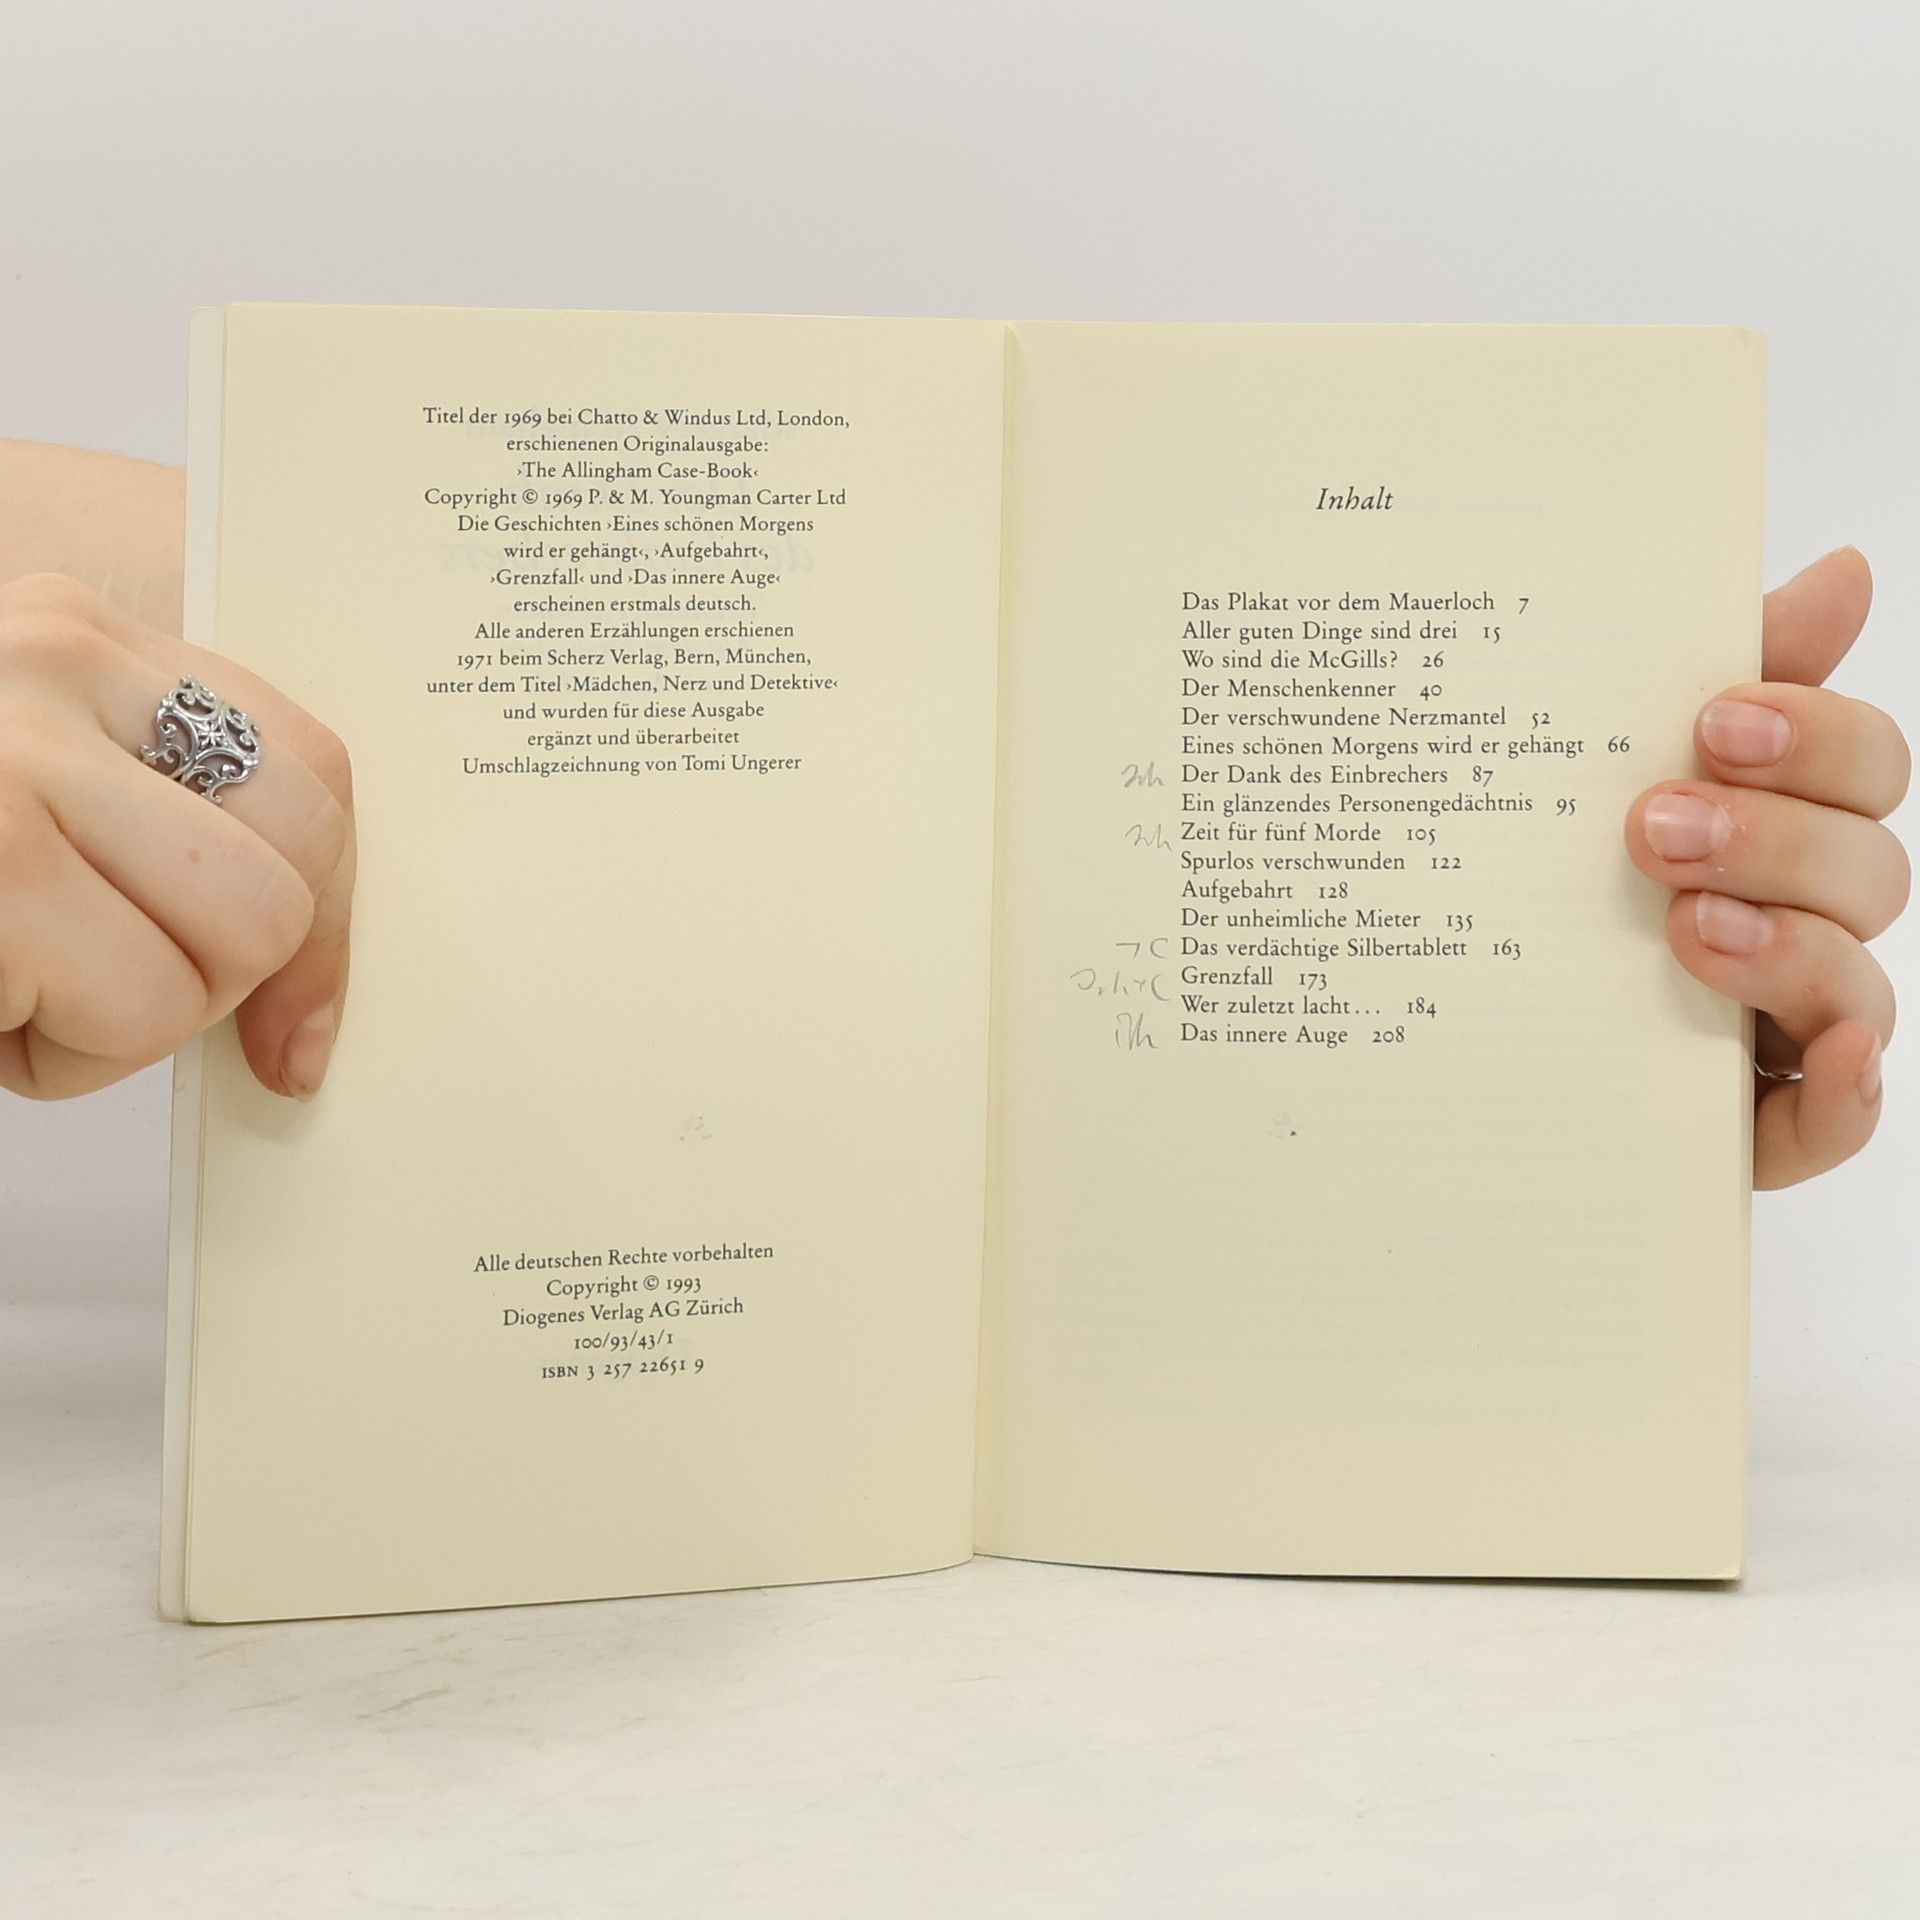 Titel der 1969 bei Chatto & Windus Ltd, London,
erschienenen Originalausgabe:
›The Allingham Case-Book‹
Copyright © 1969 P. & M. Youngman Carter Ltd
Die Geschichten ›Eines schönen Morgens
wird er gehängt‹, ›Aufgebahrt‹,
›Grenzfall‹ und ›Das innere Auge‹
erscheinen erstmals deutsch.
Alle anderen Erzählungen erschienen
1971 beim Scherz Verlag, Bern, München,
unter dem Titel ›Mädchen, Nerz und Detektive‹
und wurden für diese Ausgabe
ergänzt und überarbeitet
Umschlagzeichnung von Tomi Ungerer
Alle deutschen Rechte vorbehalten
Copyright © 1993
Diogenes Verlag AG Zürich
100/93/43/1
ISBN 3 257 22651 9
Inhalt
Das Plakat vor dem Mauerloch 7
Aller guten Dinge sind drei 15
Wo sind die McGills? 26
Der Menschenkenner 40
Der verschwundene Nerzmantel 52
Eines schönen Morgens wird er gehängt 66
Der Dank des Einbrechers 87
Ein glänzendes Personengedächtnis 95
Zeit für fünf Morde 105
Spurlos verschwunden 122
Aufgebahrt 128
Der unheimliche Mieter 135
Das verdächtige Silbertablett 163
Grenzfall 173
Wer zuletzt lacht... 184
Das innere Auge 208